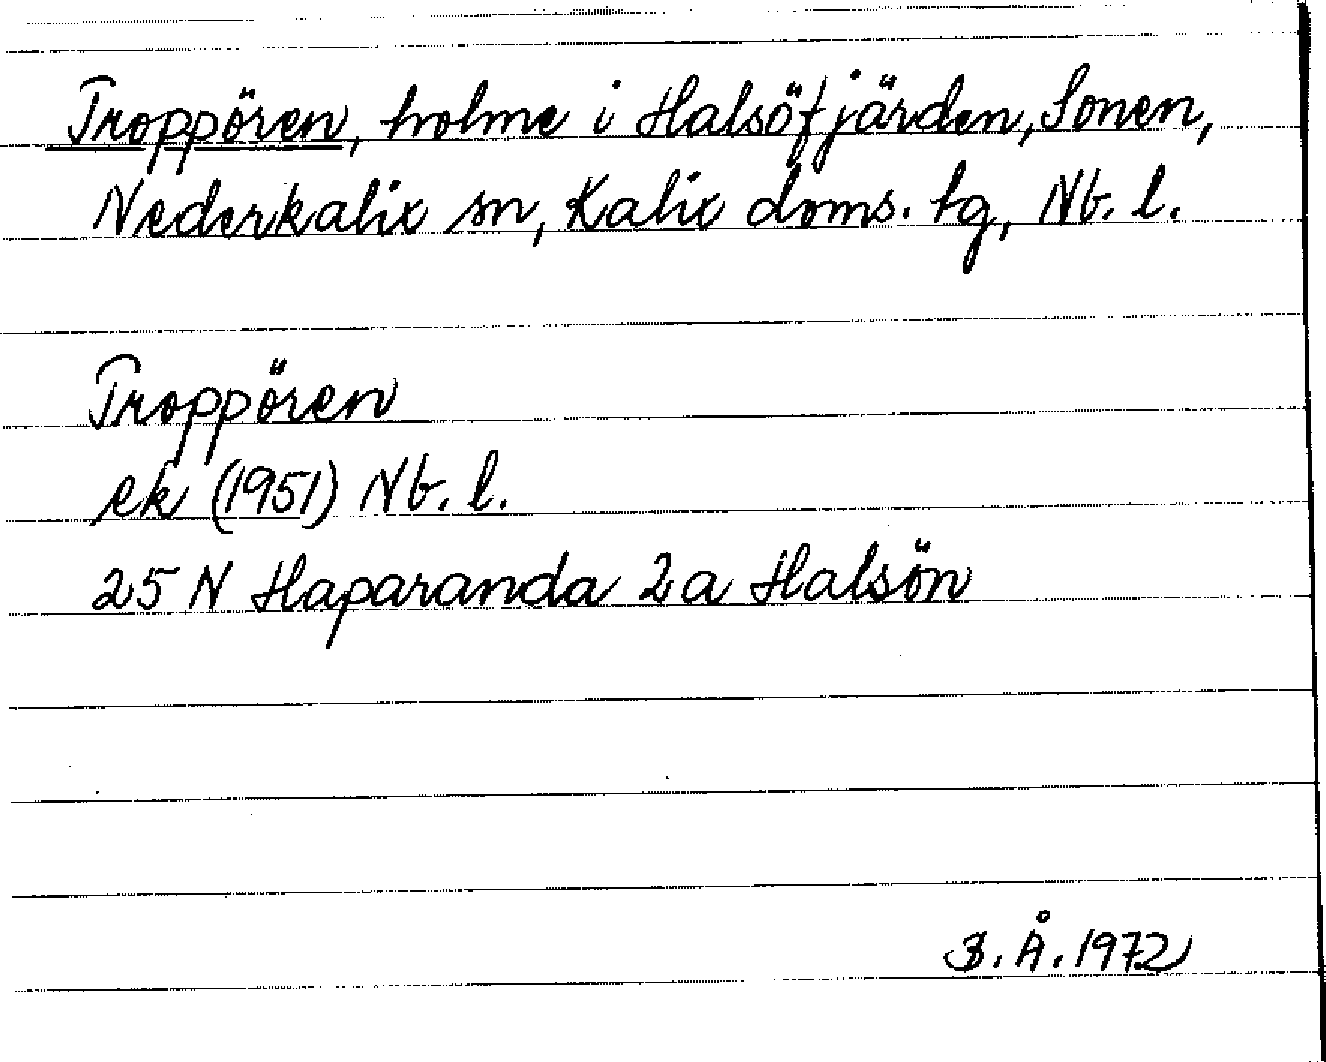 Troppören, holme i Halsöfjärden, Sonen,
Nederkalix sn, Kalix doms. tg, Nb. l.
Troppören
ek (1951) Nb. l.
25 N Haparanda 2a Halsön
B. Å. 1972